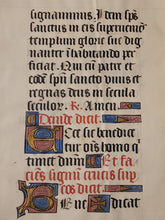 signaminus. J dem sps
sanctus in eis supernenie
templum glorie sue dig
nanter inhabitando per
ficiat. Qui cum patre et
eodē spū sancto viuis et
regnas deus in secula
seculor. R. Amen.
Deinde dicat.
Ecce sic benedice
tur omis homo q
timet dnum. Et fa
ciens signū crucis sup
eos dicat.
Bene dicat